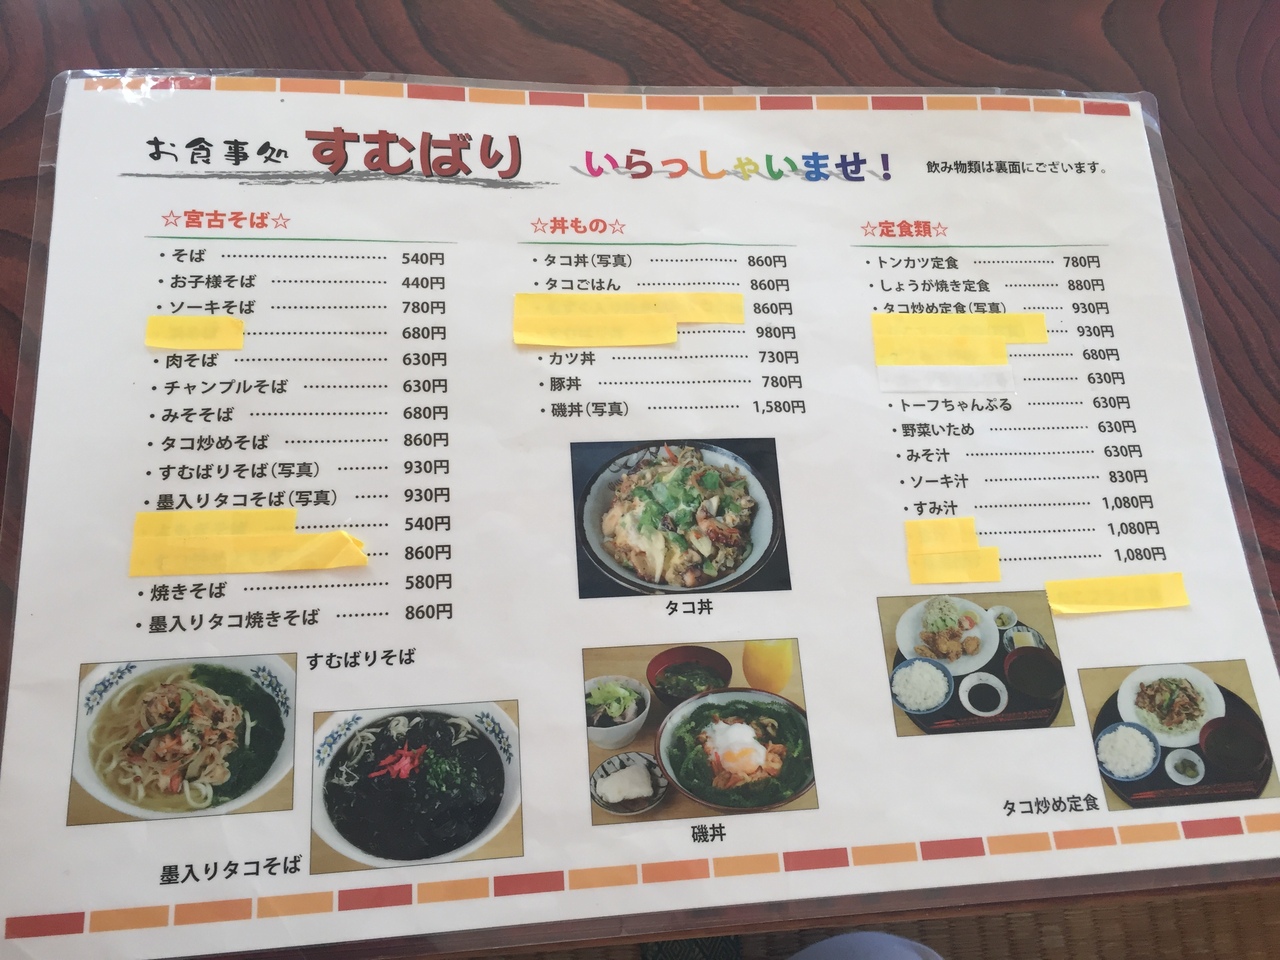 お食事処 すむばり いらっしゃいませ！ 飲み物類は裏面にございます。
☆宮古そば☆
・そば ………… 540円
・お子様そば ………… 440円
・ソーキそば ………… 780円
………… 680円
・肉そば ………… 630円
・チャンプルそば ………… 630円
・みそそば ………… 680円
・タコ炒めそば ………… 860円
・すむばりそば（写真） ……… 930円
・墨入りタコそば（写真） …… 930円
………… 540円
… 860円
・焼きそば ………… 580円
・墨入りタコ焼きそば ……… 860円
すむばりそば
墨入りタコそば
☆丼もの☆
・タコ丼（写真） ………… 860円
・タコごはん ………… 860円
860円
……… 980円
・カツ丼 ………… 730円
・豚丼 ………… 780円
・磯丼（写真） ………… 1,580円
タコ丼
磯丼
☆定食類☆
・トンカツ定食 ………… 780円
・しょうが焼き定食 ……… 880円
・タコ炒め定食（写真） …… 930円
… 930円
……… 680円
……… 630円
・トーフちゃんぷる ……… 630円
・野菜いため ………… 630円
・みそ汁 ………… 630円
・ソーキ汁 ………… 830円
・すみ汁 ………… 1,080円
………… 1,080円
………… 1,080円
タコ炒め定食